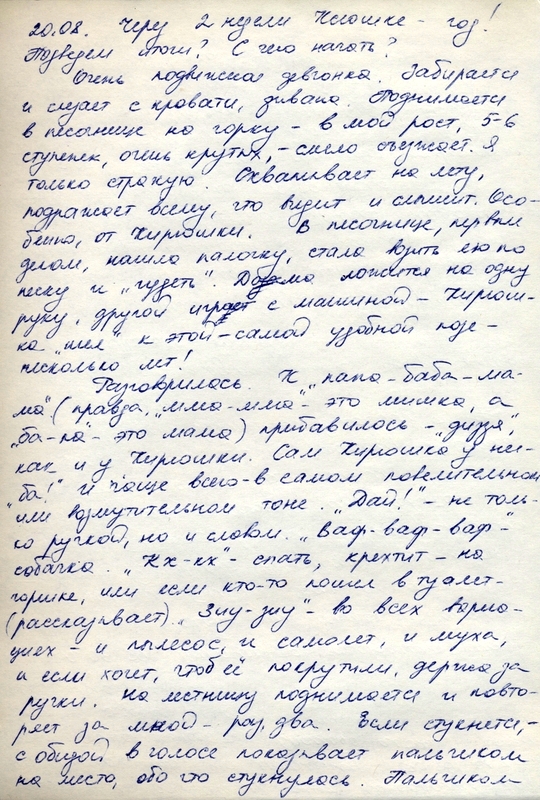 20.08. Через 2 недели Ксюшке - год!
Подведем итоги? С чего начать?
Очень подвижная девчонка. Забирается
и слезает с кровати, дивана. Поднимается
в песочнице на горку - в мой рост, 5-6
ступенек, очень крутых, - смело съезжает. Я
только страхую. Схватывает на лету,
подражает всему, что видит и слышит. Осо-
бенно, от Кирюшки. В песочнице, первым
делом, нашла палочку, стала возить ею по
песку и "гудеть". Дома ложится на одну
руку, другой играет с машиной - Кирюш-
ка "шел" к этой самой удобной позе -
несколько лет!
Разговорилась. К "папа-баба-ма-
ма" (правда, "мма-мма" - это мимка, а
"ба-па" - это мама) прибавилось - "дизя",
как и у Кирюшки. Сам Кирюшка у неи -
"ба!" И чаще всего - в самом повелительном
или возмутительном тоне. "Дай!" - не толь-
ко ручкой, но и словом. "Ваф-ваф-ваф" -
собачка. "Кх-кх" - спать, кряхтит - на
горшке, или если кто-то пошел в туалет -
(рассказывает). "Зиу-зиу" - во всех вариа-
циях - и пылесос, и самолет, и муха,
и если хочет, чтоб её покрутили, держа за
ручки. На лестницу поднимается и повто-
ряет за мной - раз, два. Если стукнется, -
с обидой в голосе показывает пальчиком
на место, обо что стукнулось. Пальчиком -